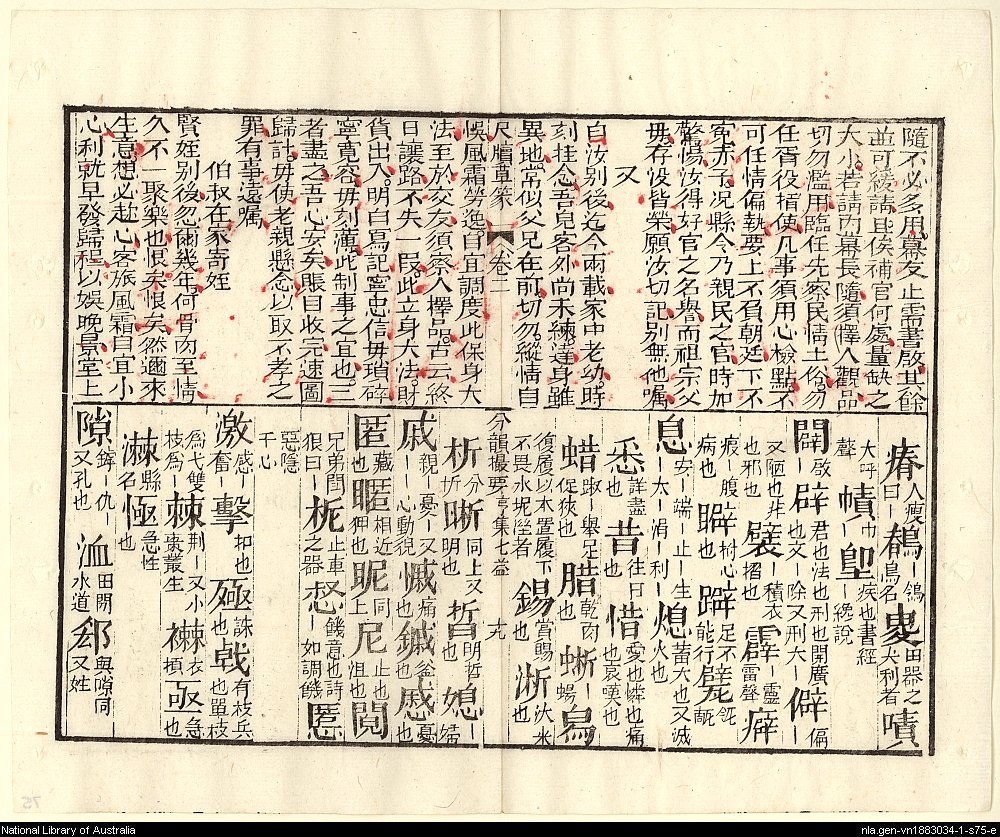 隨不必多用幕友止需書啟其餘
並可緩請且俟補官何處量缺之
大小若請內幕長隨須擇人觀品
切勿濫用臨任先察民情土俗勿
任胥役指使凡事須用心檢點不
可任情偏執要上不負朝廷下不
害赤子況縣令乃親民之官時加
警惕汝得好官之名譽而祖宗父
母存没皆榮願汝切記別無他囑
又
自汝別後迄今兩載家中老幼時
刻挂念吾兒客外尚未練達身雖
異地常似父兄在前切勿縱情自
尺牘 卷二
悞風霜勞逸自宜調度此保身大
法至於交友須察人擇品古云終
日讓路不失一段此立身大法財
貨出入明白寫記寧忠信毋瑣碎
寧寬容毋刻薄此制事之宜也三
者盡之吾心安矣賬目收完速圖
歸計毋使老親懸念以取不孝之
罪有事遠囑
伯叔在家寄姪
賢姪別後忽爾幾年何骨肉至情
久不一聚樂也恨矣恨矣然邇來
生意想必赴心客旅風霜自宜小
心利就早發歸程以娛晚景堂上
瘠人瘦曰－鶺－鴒鳥名畟田器之尖利者嘖
大呼聲幘巾－堲疾也書經－讒說
闢啟－辟君也法也刑也開廣也又－除又刑大－僻－偏
又陋也邪也襞積衣－摺也霹－靂雷聲癖
病也腹－擗－心也躃足不能行甓瓴－
息安－端－止－生－太－涓－利－熄蓄火也又滅火也
悉詳盡昔往日惜愛也憐也痛也哀嘆也
蜡－舉足促狹也腊乾肉也蜥－蜴舄
復履以木置履下不畏水坭溼者錫賞賜也淅汰米也
分韻撮要 亨集七益
析分－晰同上又明也皙明也媳－婦
戚親－憂－又－心動貌慽痛也鏚斧也慼憂也
匿藏－也暱相近－狎也昵同上尼止也沮也鬩
兄弟鬩狠曰－柅止車之器惄饑意也詩－如調饑慝
惡隱于心
激感－－奮擊扣也殛誅也戟有枝兵也單枝
為戈雙枝為－棘荆－又小棗叢生襋衣領亟急也
㶂縣名極急性也
隙釁－仇－又孔也洫田間水道郤與隙同又姓
National Library of Australia
nla.gen-vn1883034-1-s75-e
75